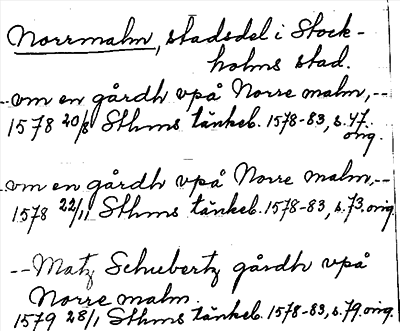 Norrmalm, stadsdel i Stock-
holms stad.
--vm en gårdh vpå Norre malm,--
1578 20/8 Sthms tänkeb. 1578-83, s.47.
orig.
--vm en gårdh vpå Norre malm,--
1578 22/11 Sthms tänkeb. 1578-83, s.73. orig.
--Matz Schubertz gårdh vpå
Norre malm.
1579 28/1 Sthms tänkeb. 1578-83, s.79. orig.